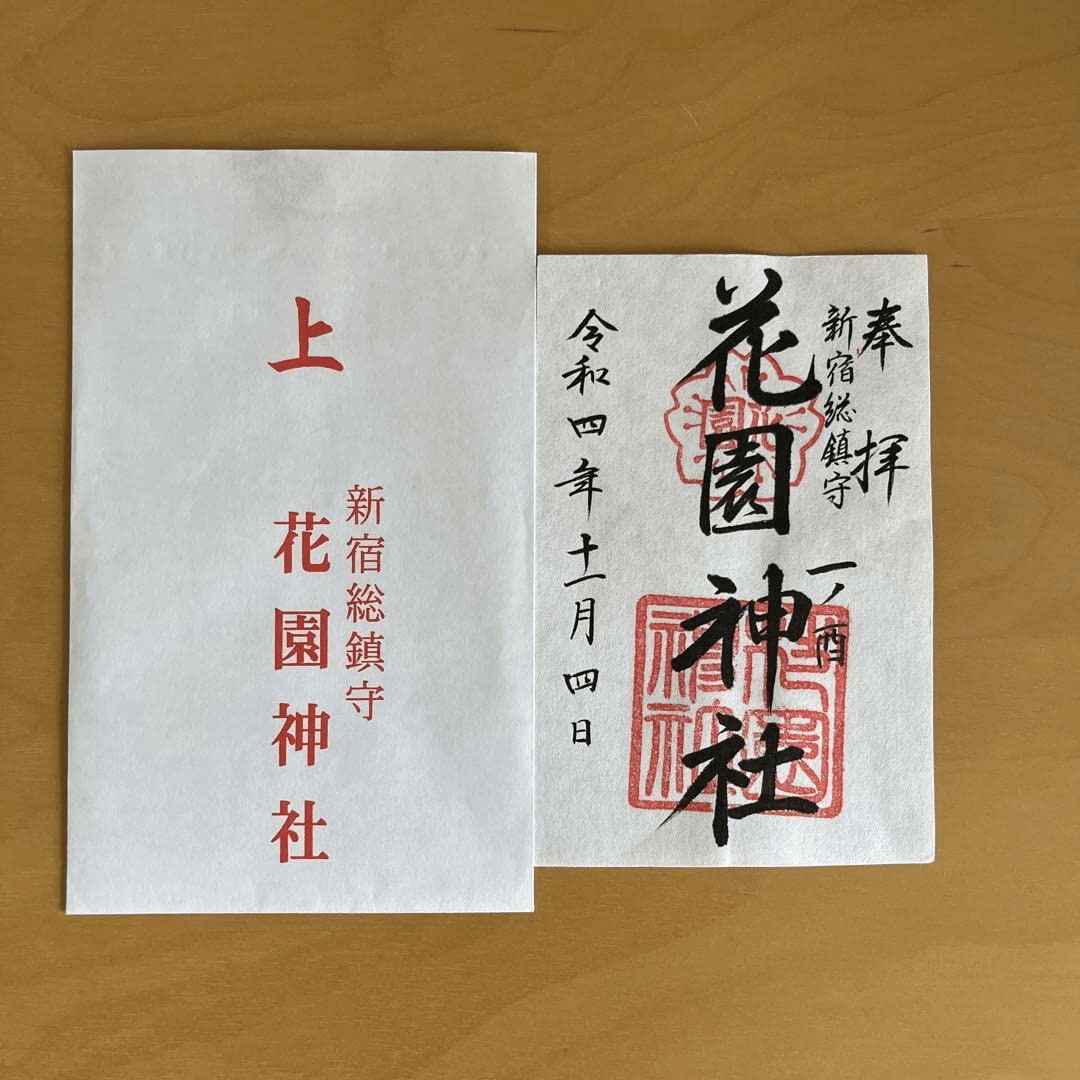 上
新宿総鎮守
花園神社
奉拝
新宿総鎮守
一ノ酉
花園神社
令和四年十一月四日
花園
花園神社